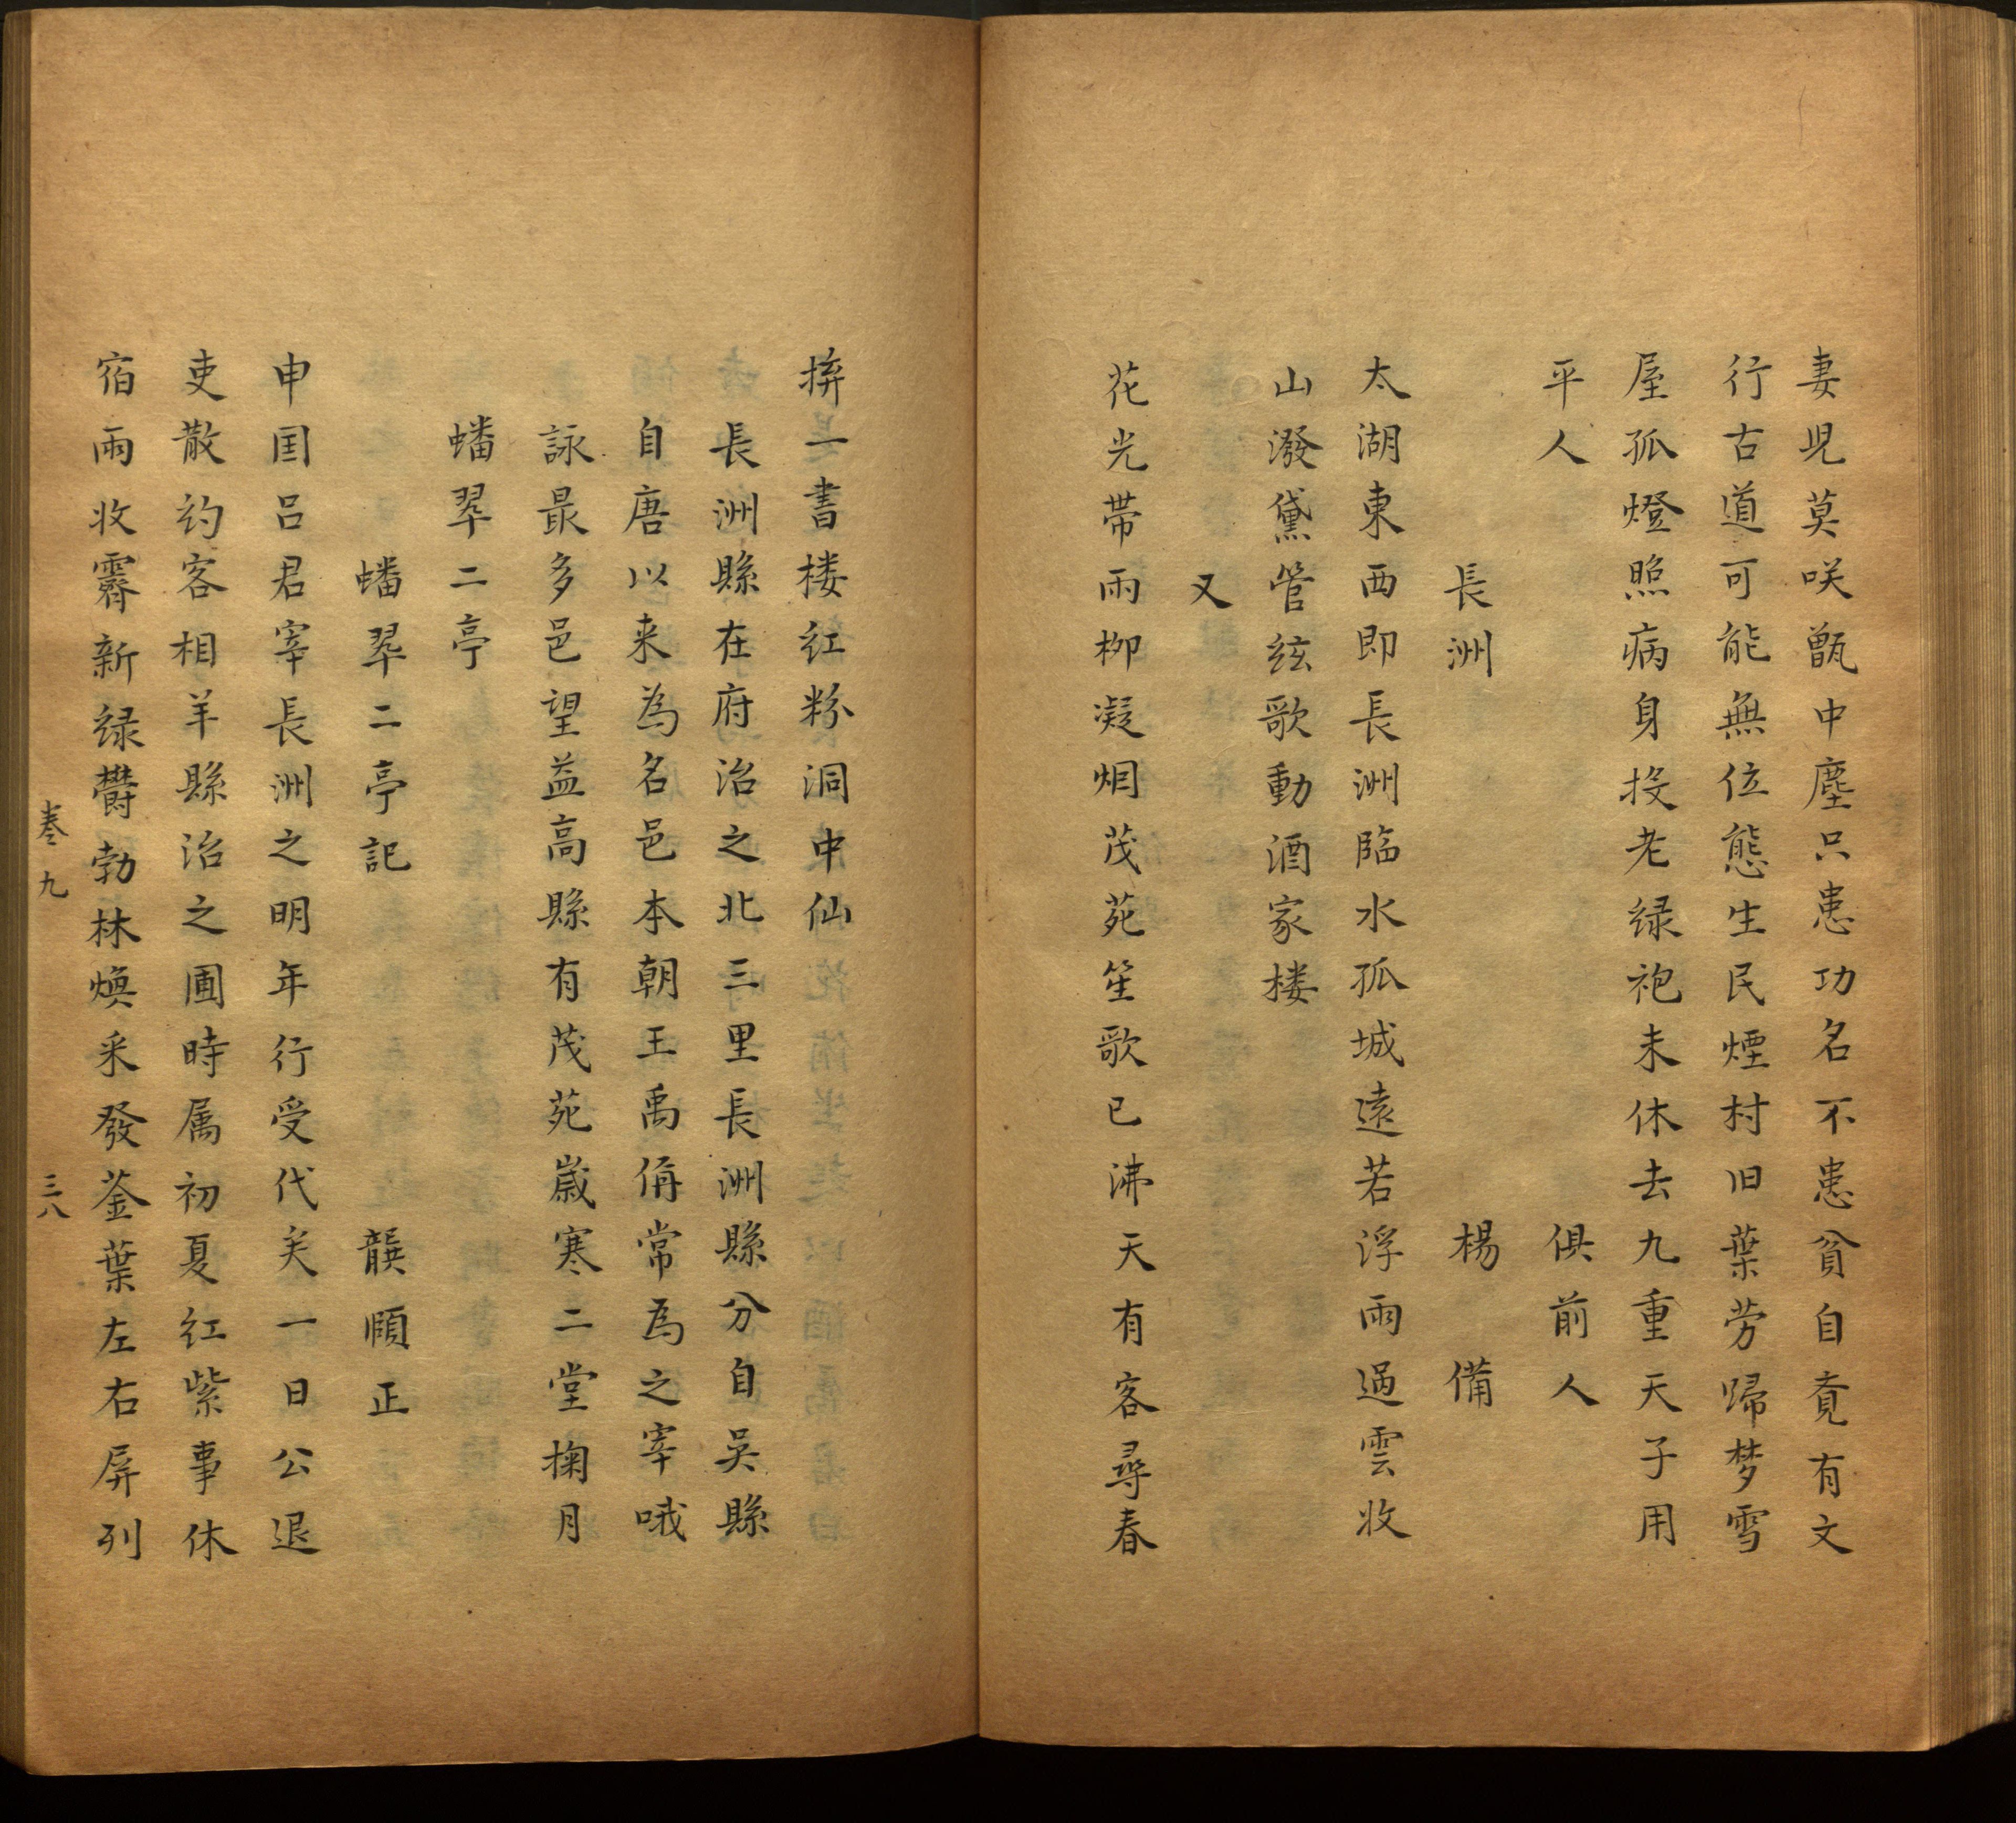 妻児莫咲甑中塵只患功名不患貧自覔有文
行古道可能無位態生民煙村旧葉劳歸梦雪
屋孤燈照病身投老緑袍未休去九重天子用
平人　俱前人
長洲　楊備
太湖東西即長洲臨水孤城遠若浮雨過雲收
山潑黛管絃歌動酒家楼
又
花光帶雨柳凝烟茂苑笙歌已沸天有客尋春
擠一書楼红粉洞中仙
長洲縣在府治之北三里長洲縣分自吳縣
自唐以来為名邑本朝王禹偁常為之宰哦
詠最多邑望益高縣有茂苑歲寒二堂掬月
蟠翠二亭
蟠翠二亭記　龔頤正
申国呂君宰長洲之明年行受代矣一日公退
吏散約客相羊縣治之圃時属初夏红紫事休
宿雨收霽新緑欝勃林煥采發釜葉左右屏列
卷九　三八